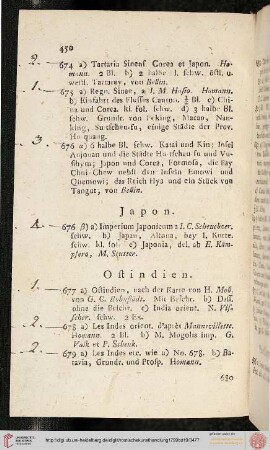 450
2. 674 a) Tartaria Sinens. Corea et Japon. Ho-
mann. 2 Bl. b) 2 halbe Bl. schw. östl. u.
westl. Tartarey, von Bellin.
1. 675 a) Regn. Sinae, a I. M. Hasio. Homann.
b) Einfahrt des Flusses Canton. ½ Bl. c) Chi-
na und Corea. kl. fol. schw. d) 3 halbe Bl.
schw. Grundr. von Peking, Macao, Nan-
king, Su-tschen-fu, einige Städte der Prov.
Hu-quang.
3. 676 a) 6 halbe Bl. schw. Katai und Kin; Insel
Anjouan und die Städte Ho-tschen-fu und Vo-
schym; Japon und Corea, Formosa, die Bay
Choi-Chew nebst den Inseln Emowi und
Quemowi; das Reich Hya und ein Stück von
Tangut, von Bellin.
Japon.
676 (β) a) Imperium Japonicum a I. C. Scheuchzer.
schw. b) Japan, Aitana, bey I. Keere.
schw. kl. fol. c) Japonia, del. ab E. Kam-
pfero, M. Seutter.
Ostindien.
1. 677 a) Ostindien, nach der Karte von H. Moll,
von G. C. Bodenstadt. Mit Beschr. b) Dass.
ohne die Beschr. c) India orient. N. Vis-
scher. schw. 2 Ex.
2. 678 a) Les Indes orient. d'après Mannevillette.
Homann. 2 Bl. b) M. Mogolis imp. G.
Valk et P. Schenk.
2. 679 a) Les Indes etc. wie a) No. 678. b) Ba-
tavia, Grundr. und Prosp. Homann.
680
http://digi.ub.uni-heidelberg.de/diglit/rostscherkunsthandlung1799bd9/0477